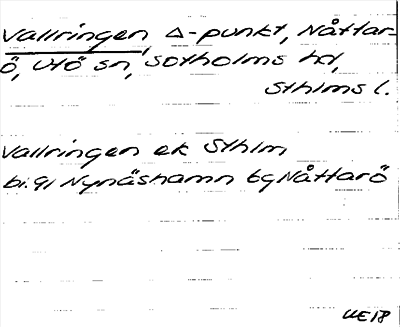 Vallringen, Δ-punkt, Nåttar-
ö, Utö sn, Sotholms hd,
Sthlms l.
Vallringen ek Sthlm
bl. 91 Nynäshamn 6g Nåttarö
UE18